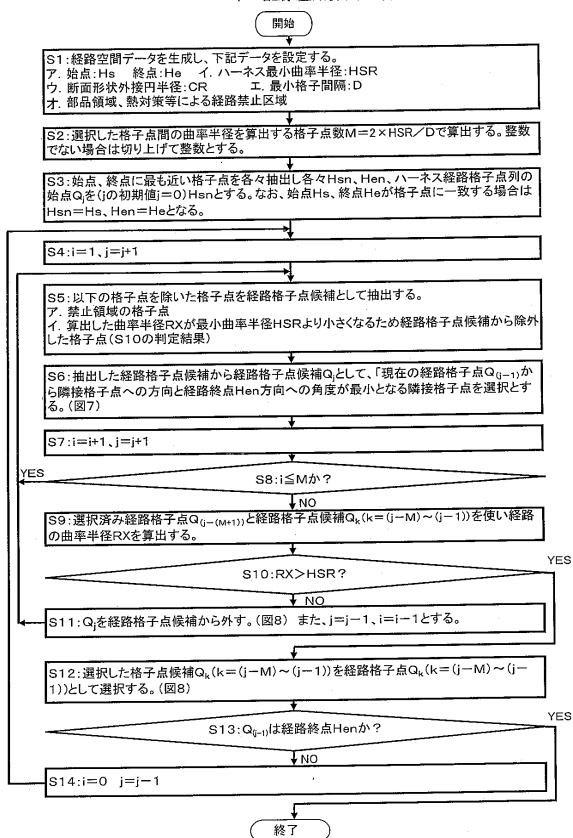 開始
S1:経路空間データを生成し、下記データを設定する。
ア. 始点:Hs　終点:He　イ. ハーネス最小曲率半径:HSR
ウ. 断面形状外接円半径:CR　エ. 最小格子間隔:D
オ. 部品領域、熱対策等による経路禁止区域
S2:選択した格子点間の曲率半径を算出する格子点数M=2×HSR/Dで算出する。整数
でない場合は切り上げて整数とする。
S3:始点、終点に最も近い格子点を各々抽出し各々Hsn、Hen、ハーネス経路格子点列の
始点Qjを(jの初期値j=0)Hsnとする。なお、始点Hs、終点Heが格子点に一致する場合は
Hsn=Hs、Hen=Heとなる。
S4:i=1、j=j+1
S5:以下の格子点を除いた格子点を経路格子点候補として抽出する。
ア. 禁止領域の格子点
イ. 算出した曲率半径RXが最小曲率半径HSRより小さくなるため経路格子点候補から除外
した格子点(S10の判定結果)
S6:抽出した経路格子点候補から経路格子点候補Qjとして、「現在の経路格子点Q(j-1)か
ら隣接格子点への方向と経路終点Hen方向への角度が最小となる隣接格子点を選択とす
る。(図7)
S7:i=i+1、j=j+1
YES
S8:i≦Mか?
NO
S9:選択済み経路格子点Q(j-(M+1))と経路格子点候補Qk(k=(j-M)~(j-1))を使い経路
の曲率半径RXを算出する。
YES
S10:RX>HSR?
NO
S11:Qjを経路格子点候補から外す。(図8)　また、j=j-1、i=i-1とする。
S12:選択した格子点候補Qk(k=(j-M)~(j-1))を経路格子点Qk(k=(j-M)~(j-
1))として選択する。(図8)
YES
S13:Q(j-1)は経路終点Henか?
NO
S14:i=0　j=j-1
終了